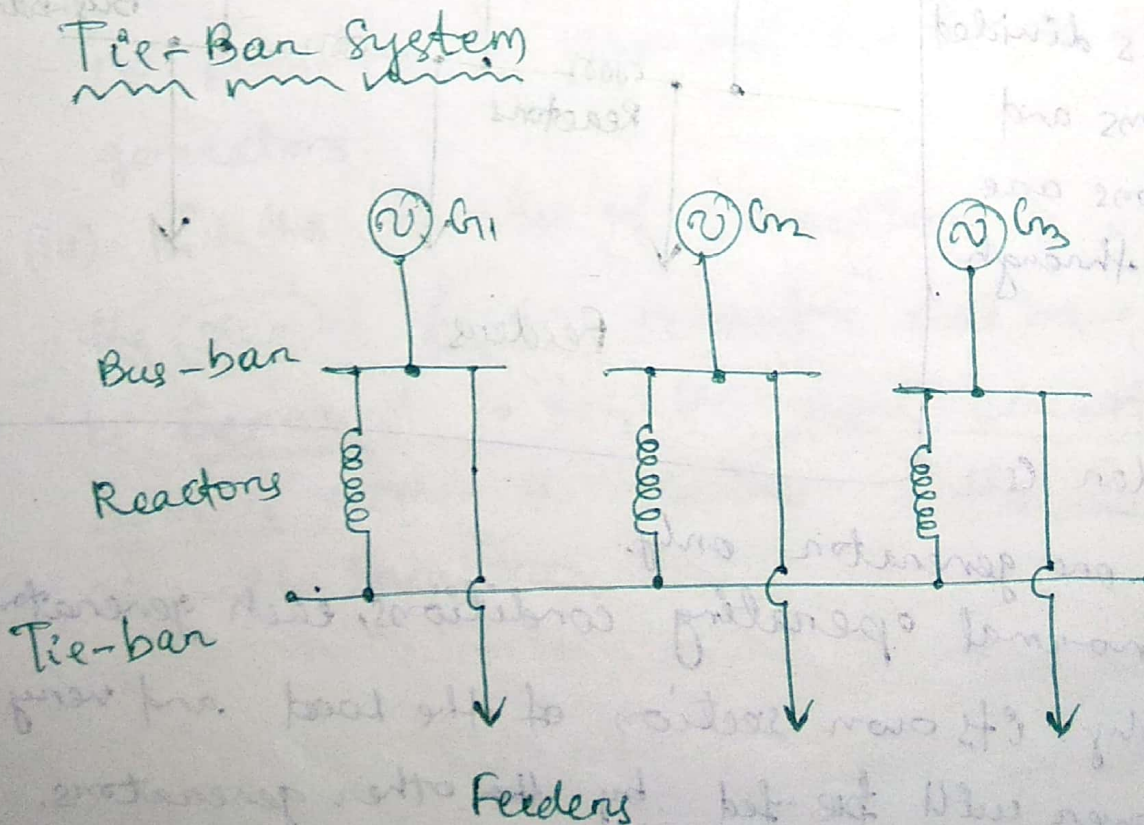 Tie-Bar System
G1 G2 G3
Bus-bar
Reactors
Tie-bar
Feeders